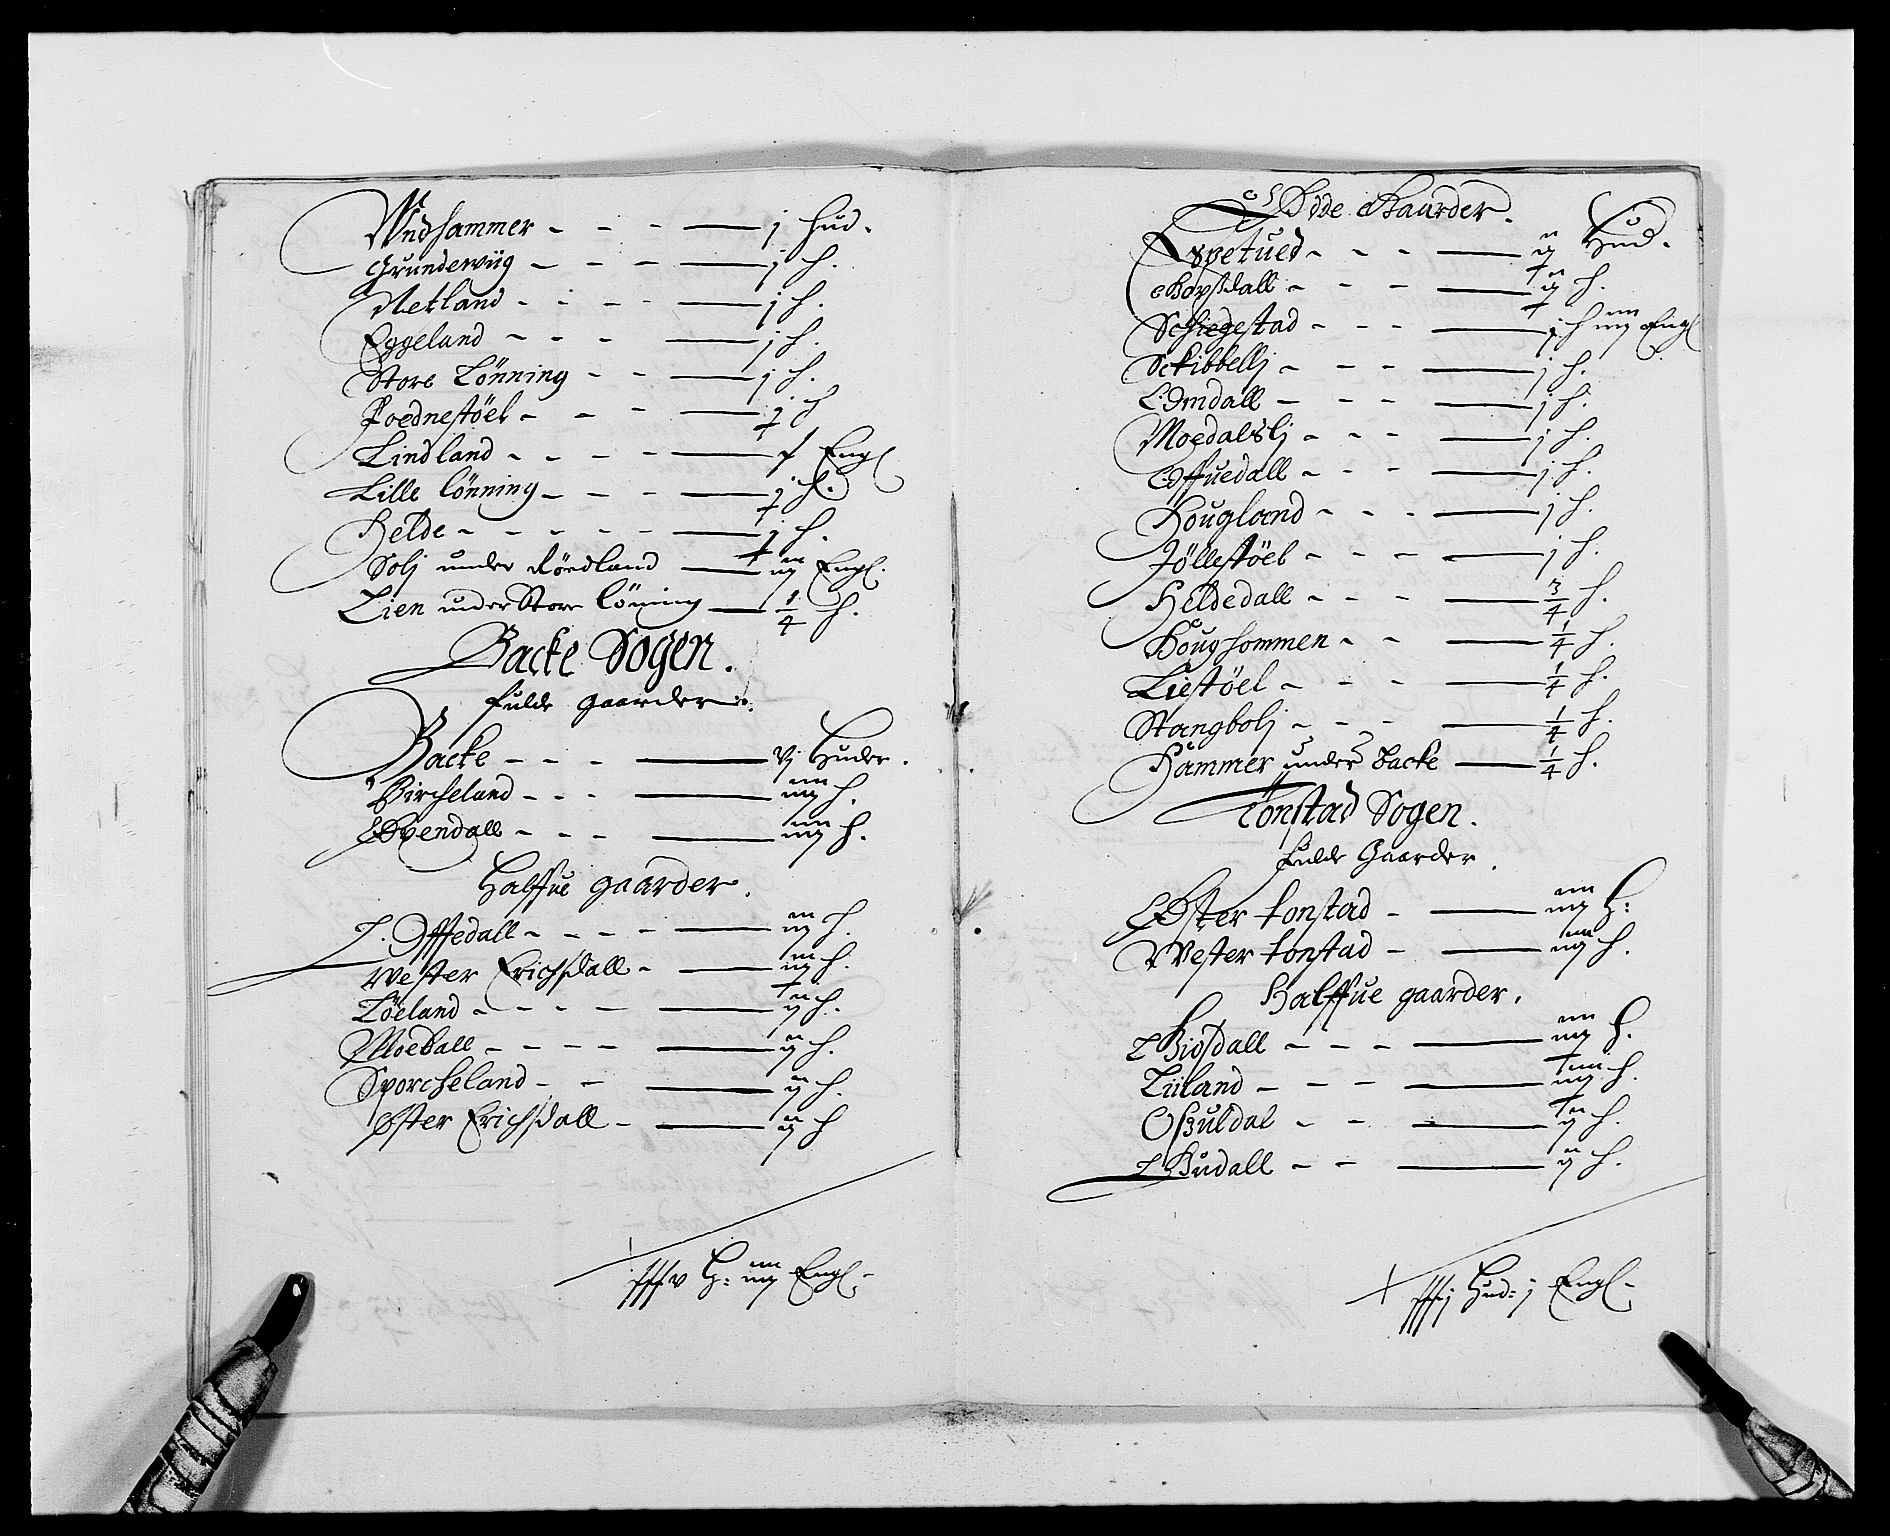 Undhammer - - - j Hud.
Grundewiig - - - - j h.
Netland - - - - j h.
Eggeland - - - - j h.
Store Lönning - - j h.
Roednestöel - - - j h
Lindland - - - - Engl
Lille lönning - - - j h.
Helde - - - - - - j h.
Solj under Röedland iij Engl.
Lien under Store löning 1/4 h.
Backe Sogen.
fulde gaarder.
Backe - - - vj Huder.
Bircheland - - - iiij h.
Övendall - - - iiij h.
Halffue gaarder.
Öffedall - - - - iij h.
Wester Erichsdall - iij h.
Löeland - - - - ij h.
Moedall - - - - ij h.
Sporcheland - - ij h.
Öster Erichsdall - ij h
H: iiij Engl:
Öde Gaarder.
Espetued - - - ij Hud.
Gorssdall - - - ij h.
Schiegestad - - - j h iiij Engl
Sckibbellj - - - j h.
Omdall - - - j h.
Moedalslj - - - j h.
Eidffuedall - - - j h.
Hougland - - - j h.
Jöllestöel - - - j h.
Heldedall - - - 3/4 h.
Houghommen - - 1/4 h.
Liestöel - - - 1/4 h.
Stangbolj - - - 1/4 h.
Hammer under Backe 1/4 h.
Tonstad Sogen.
Fulde Gaarder.
Öster tonstad - iiij H:
Wester tonstad - iiij h.
Halffue gaarder.
Giosdall - - - iiij h.
Liiland - - - iiij h.
Osuldal - - ij h.
Budall - - ij h.
Hud: j Engl: